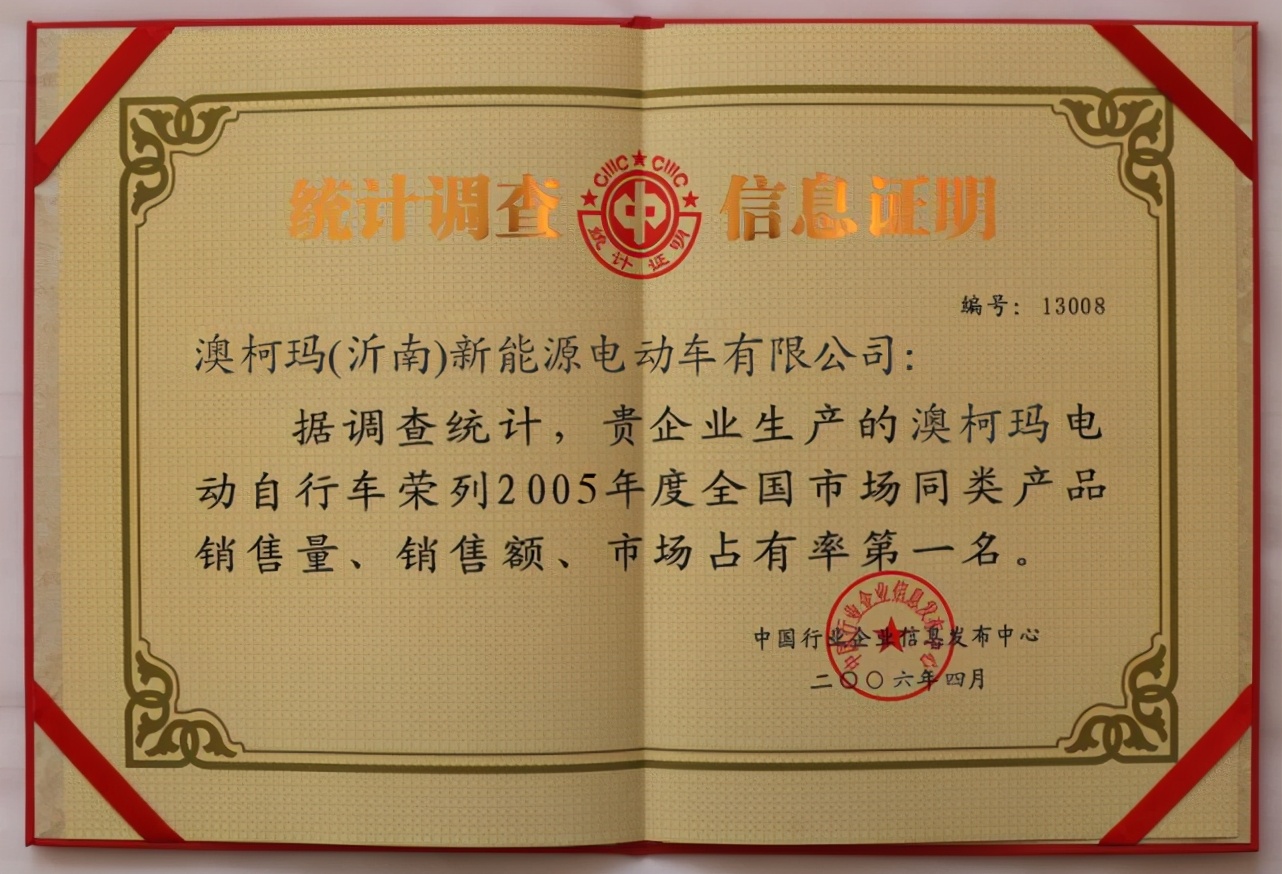 统计调查 信息证明
CIIIC★CIIIC
中
统计证明
编号：13008
澳柯玛(沂南)新能源电动车有限公司：
据调查统计，贵企业生产的澳柯玛电
动自行车荣列2005年度全国市场同类产品
销售量、销售额、市场占有率第一名。
中国行业企业信息发布中心
二〇〇六年四月
中国行业企业信息发布中心